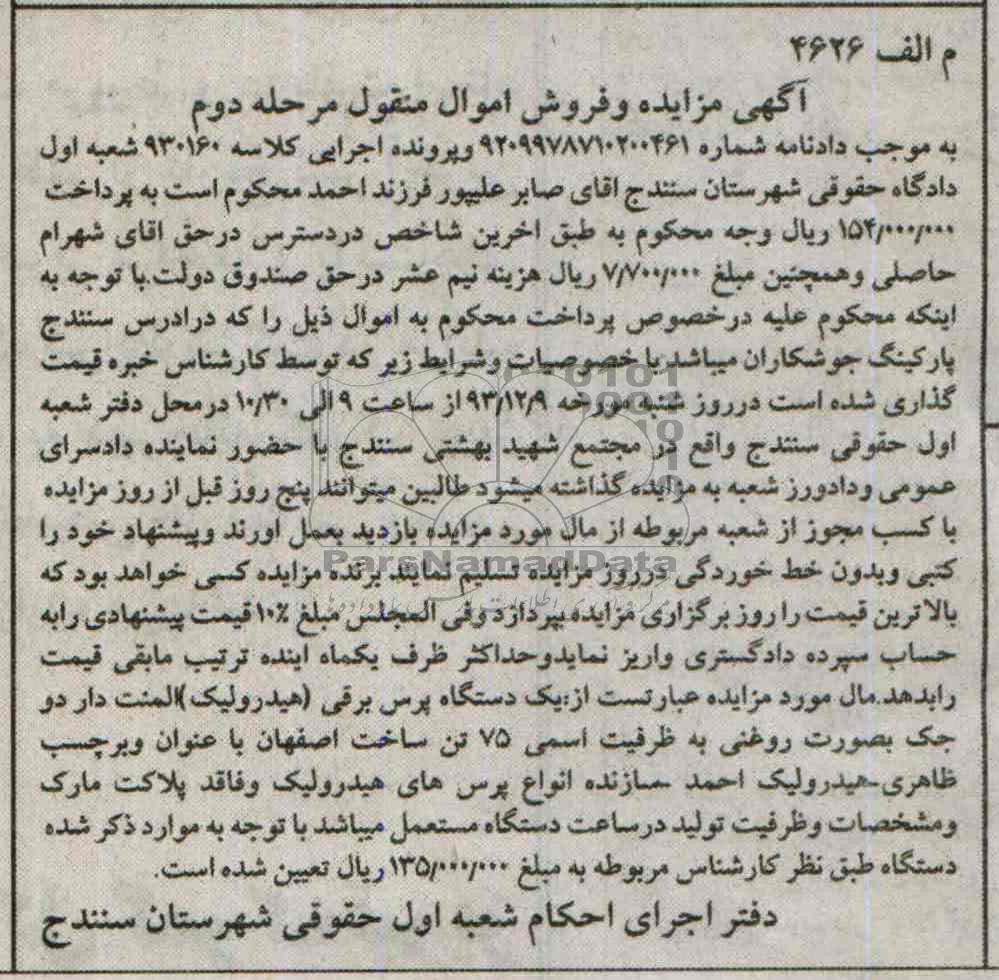 م الف ۴۶۲۶
آگهی مزایده وفروش اموال منقول مرحله دوم
به موجب دادنامه شماره ۹۲۰۹۹۷۸۷۱۰۲۰۰۴۶۱ وپرونده اجرایی کلاسه ۹۳۰۱۶۰ شعبه اول
دادگاه حقوقی شهرستان سنندج اقای صابر علیپور فرزند احمد محکوم است به پرداخت
۱۵۴/۰۰۰/۰۰۰ ریال وجه محکوم به طبق اخرین شاخص دردسترس درحق اقای شهرام
حاصلی وهمچنین مبلغ ۷/۷۰۰/۰۰۰ ریال هزینه نیم عشر درحق صندوق دولت.با توجه به
اینکه محکوم علیه درخصوص پرداخت محکوم به اموال ذیل را که درادرس سنندج
پارکینگ جوشکاران میباشد با خصوصیات وشرایط زیر که توسط کارشناس خبره قیمت
گذاری شده است درروز شنبه مورخه ۹۳/۱۲/۹ از ساعت ۹ الی ۱۰/۳۰ درمحل دفتر شعبه
اول حقوقی سنندج واقع در مجتمع شهید بهشتی سنندج با حضور نماینده دادسرای
عمومی ودادورز شعبه به مزایده گذاشته میشود طالبین میتوانند پنج روز قبل از روز مزایده
با کسب مجوز از شعبه مربوطه از مال مورد مزایده بازدید بعمل اورند وپیشنهاد خود را
ParsNamadData
کتبی وبدون خط خوردگی درروز مزایده تسلیم نمایند برنده مزایده کسی خواهد بود که
بالاترین قیمت را روز برگزاری مزایده بپردازد وفی المجلس مبلغ ۱۰٪ قیمت پیشنهادی رابه
حساب سپرده دادگستری واریز نمایدوحداکثر ظرف یکماه اینده ترتیب مابقی قیمت
رابدهد.مال مورد مزایده عبارتست از:یک دستگاه پرس برقی (هیدرولیک)المنت دار دو
جک بصورت روغنی به ظرفیت اسمی ۷۵ تن ساخت اصفهان با عنوان وبرچسب
ظاهری-هیدرولیک احمد -سازنده انواع پرس های هیدرولیک وفاقد پلاکت مارک
ومشخصات وظرفیت تولید درساعت دستگاه مستعمل میباشد با توجه به موارد ذکر شده
دستگاه طبق نظر کارشناس مربوطه به مبلغ ۱۳۵/۰۰۰/۰۰۰ ریال تعیین شده است.
دفتر اجرای احکام شعبه اول حقوقی شهرستان سنندج